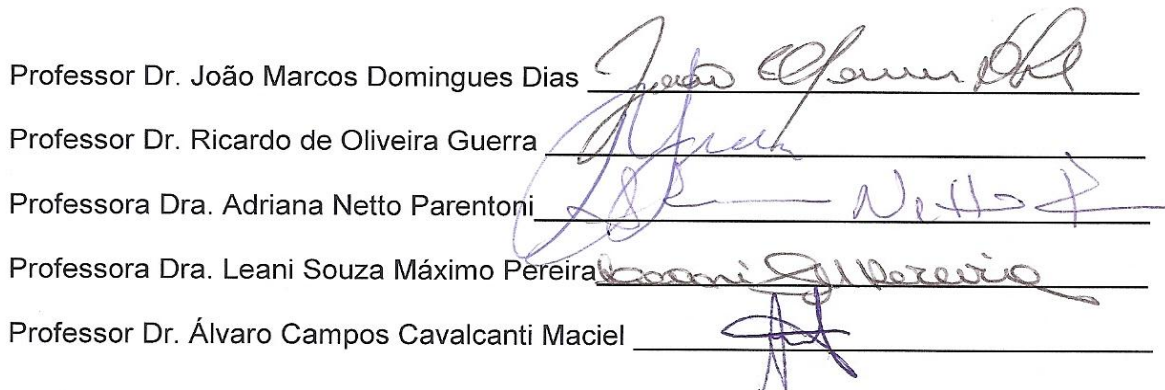 Professor Dr. João Marcos Domingues Dias João
Professor Dr. Ricardo de Oliveira Guerra
Professora Dra. Adriana Netto Parentoni Netto
Professora Dra. Leani Souza Máximo Pereira Leani Pereira
Professor Dr. Álvaro Campos Cavalcanti Maciel